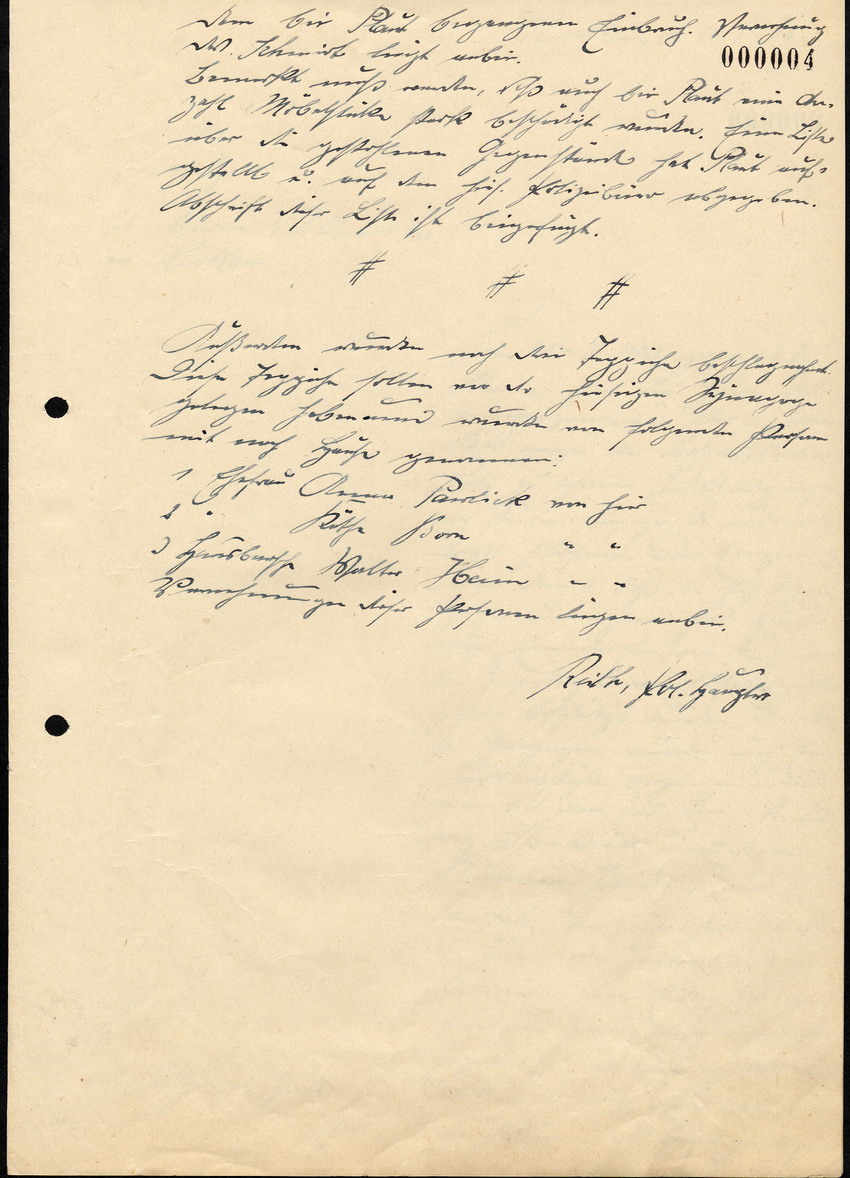 dem bei Plaut begangenen Einbruch. Vernehmung
000004
W. Schmidt liegt anbei.
Bemerkt muß werden, daß auch bei Plaut eine An-
zahl Möbelstücke stark beschädigt wurden. Eine Liste
über die gestohlenen Gegenstände hat Plaut auf-
gestellt u. auf dem hies. Polizeibüro abgegeben.
Abschrift dieser Liste ist beigefügt.
# # #
Außerdem wurden noch drei Teppiche beschlagnahmt.
Diese Teppiche sollen vor der hiesigen Synagoge
gelegen haben und wurden von folgenden Personen
mit nach Hause genommen:
1 Ehefrau Anna Pawlick von hier
2 " Käthe Born " "
3 Hausbursche Walter Heim " "
Vernehmungen dieser Personen liegen anbei.
Pol. Hauptw